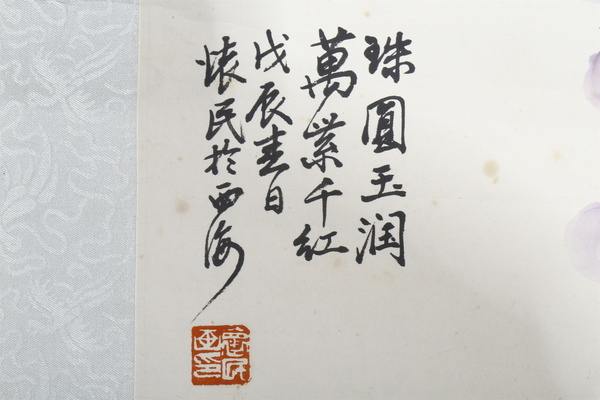 珠圓玉润
萬紫千红
戊辰春日
懷民於西海